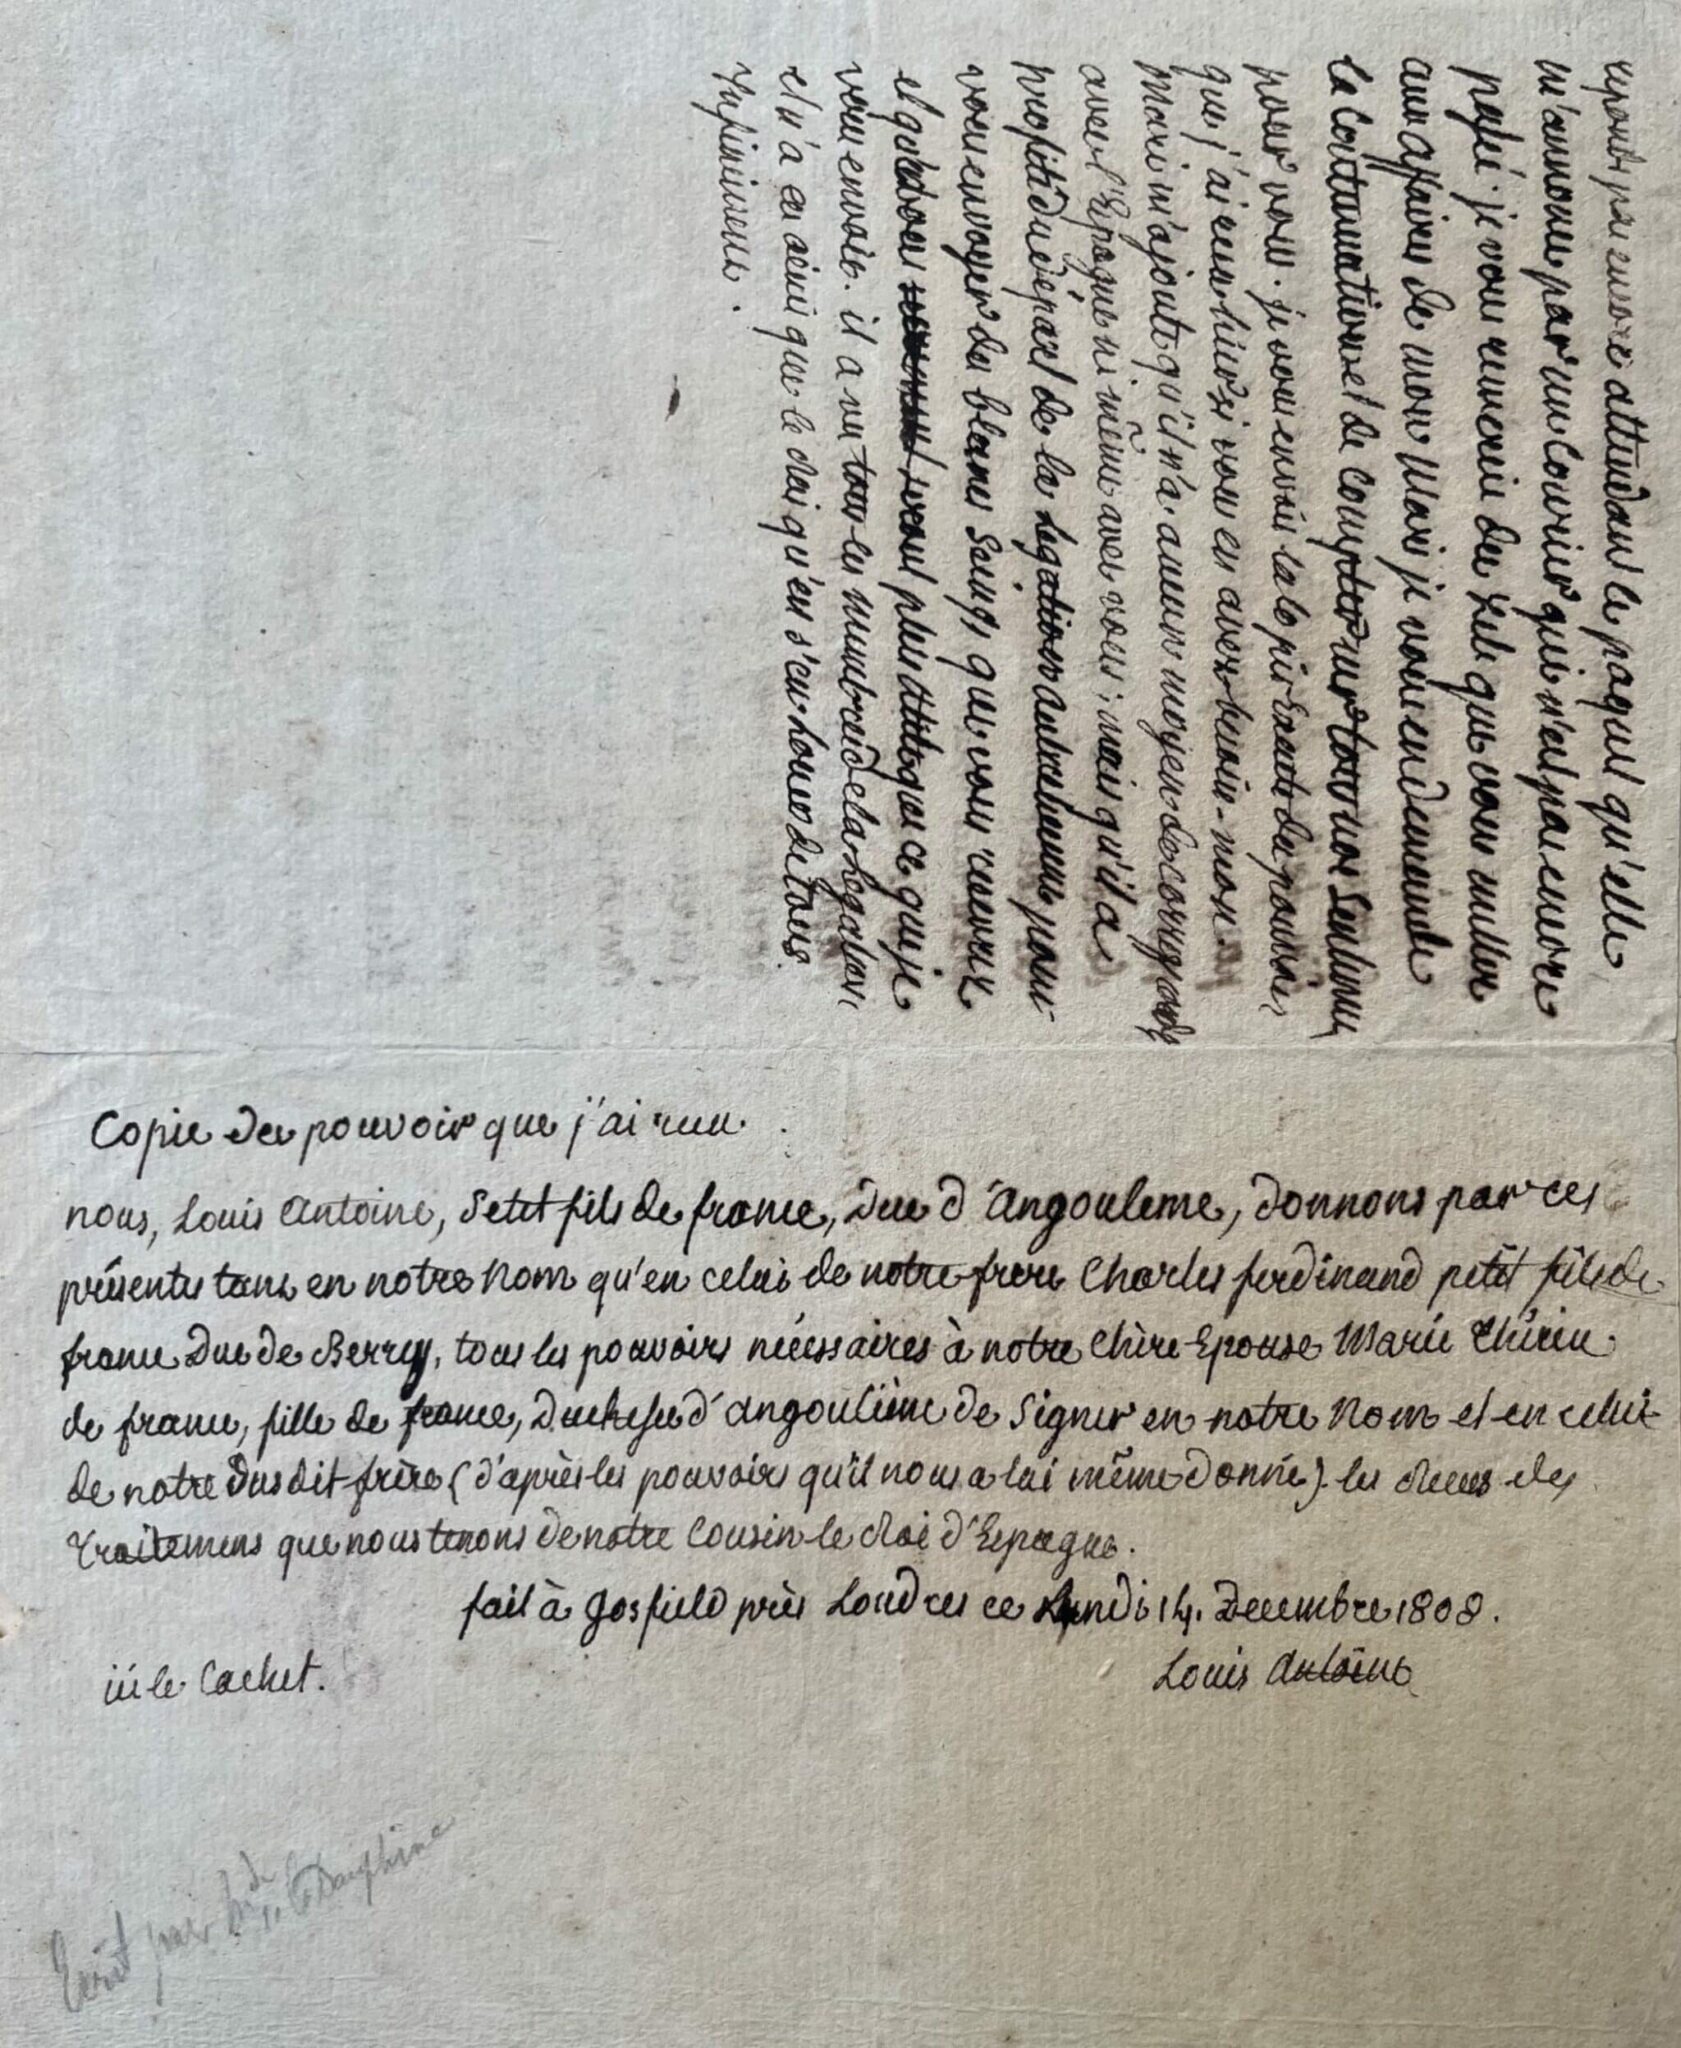 répond pas encore attendant le paquet qu'elle
m'annonce par un Courier qui n'est pas encore
passé. je vous remercie du zèle que vous mettez
aux affaires de mon Mari je vous en demande
la Continuation et de compter sur tous nos Sentimens
pour vous. je vous envoie la copie exacte du pouvoir
que j'ai reçu hier si vous en avez besoin. mon
Mari m'ajoute qu'il n'a aucun moyen de correspondre
avec l'Espagne ni même avec vous; mais qu'il a
profité du départ de la Legation autrichienne pour
vous envoyer des blancs Seings que vous recevrez
et qui dans seront plus utile que ce que je
vous envoie. il a vu tous les membres de la Legation
et n'a eu ainsi que le Roi qu'en s'en louer de tous
infiniment.
Copie du pouvoir que j'ai recu.
nous, Louis Antoine, Petit fils de france, Duc d'Angouleme, donnons par ces
présentes tant en notre Nom qu'en celui de notre frere Charles ferdinand petit fils de
france Duc de Berry, tous les pouvoirs nécessaires à notre Chère Epouse Marie Thérèse
de france, fille de france, Duchesse d'angoulême de Signer en notre Nom et en celui
de notre dus dit frère (d'après les pouvoirs qu'il nous a lui même donné) les Recus des
traitemens que nous tenons de notre Cousin le Roi d'Espagne.
fait à gosfield près Londres ce Lundi 14. Decembre 1808.
ici le Cachet.
Louis Antoine
Ecrit par Mde la Dauphine